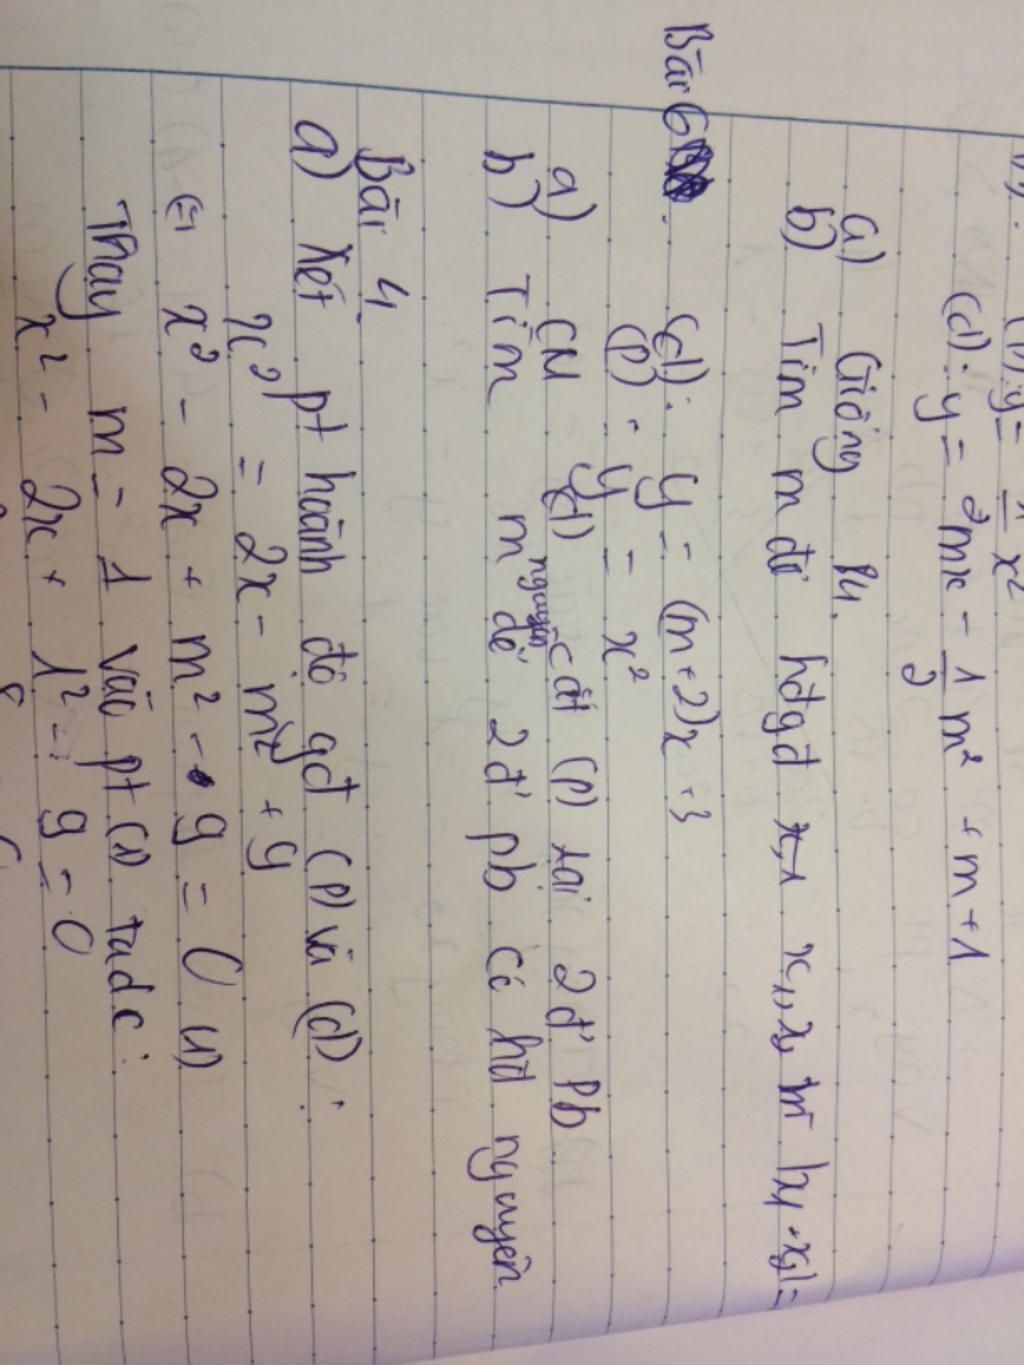 (P): y = 1/2 x²
(d): y = mx - 1/2 m² + m + 1
a) Giống B4.
b) Tìm m để hđgđ x1, x2 tm |x1 - x2| =
Bài 6: (d): y = (m+2)x + 3
(P): y = x²
a) CM (d) cắt (P) tại 2đ' Pb
b) Tìm m nguyên để 2đ' pb có hđ nguyên.
Bài 4
a) Xét pt hoành độ gđ (P) và (d):
x² = 2x - m² + 9
⇔ x² - 2x + m² - 9 = 0 (1)
Thay m = 1 vào pt (1) ta đc:
x² - 2x + 1² - 9 = 0